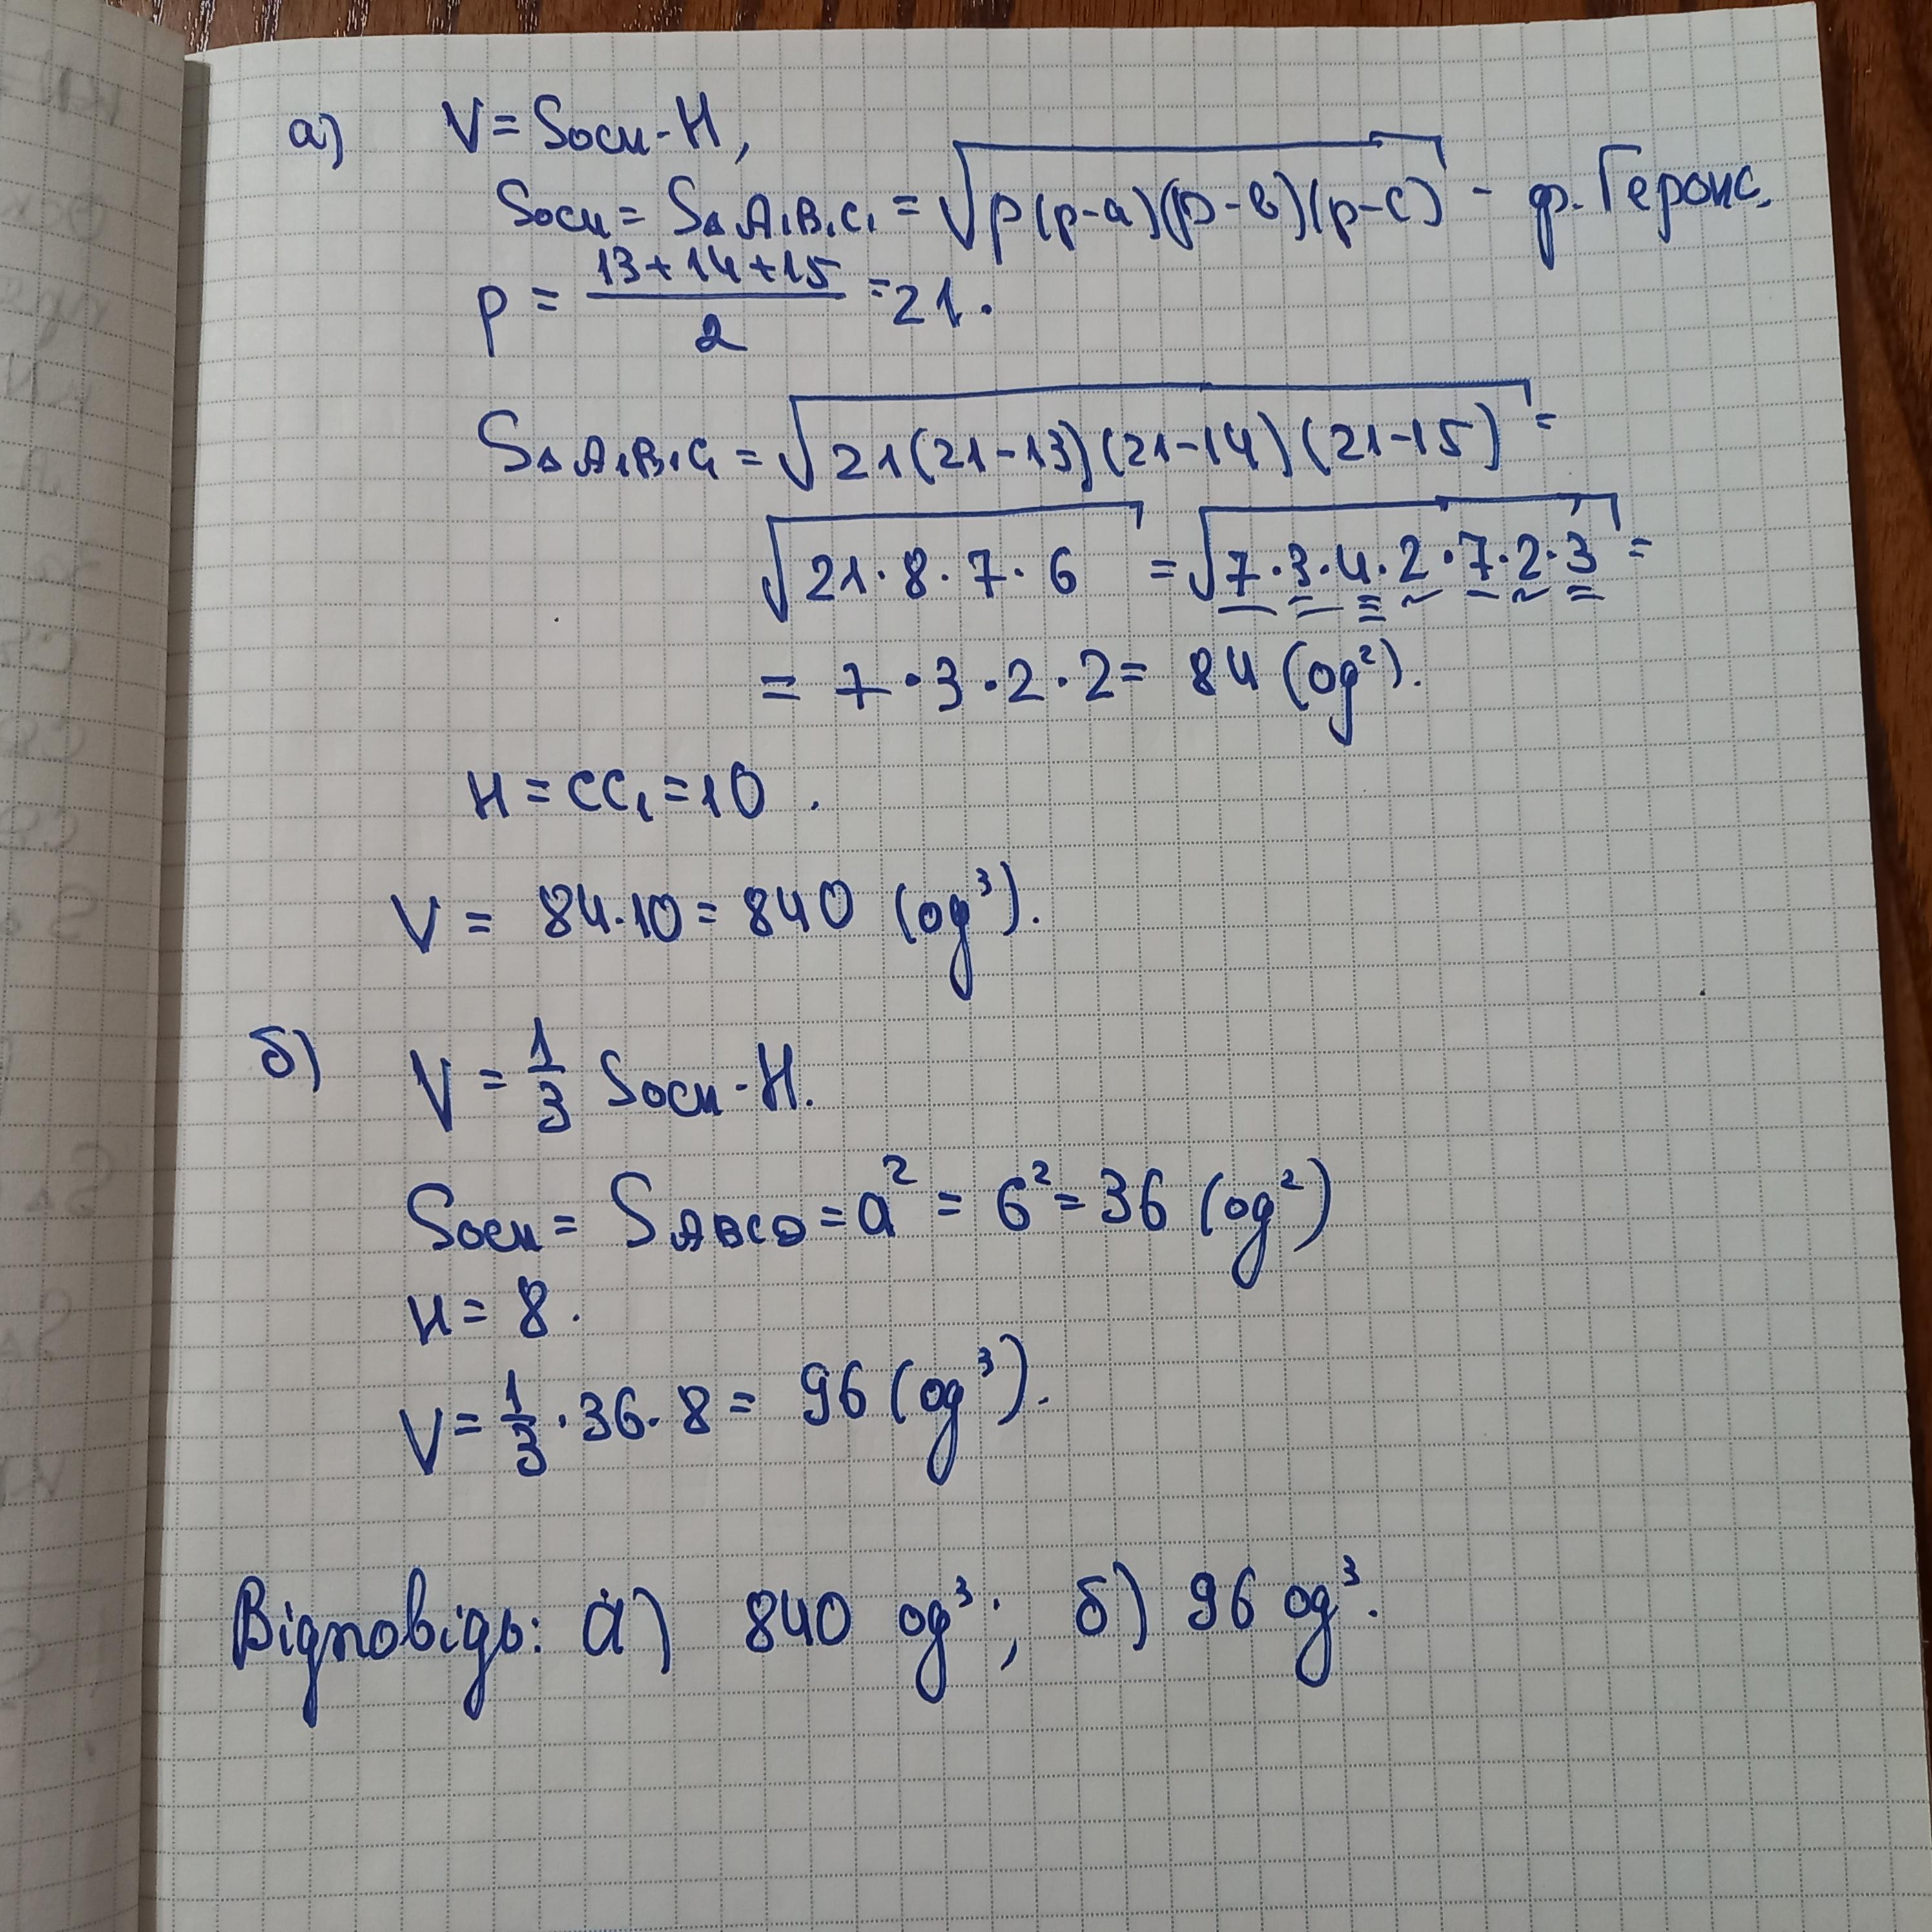 а) V = Sосн · H,
Sосн = S△A₁B₁C₁ = √p(p-a)(p-b)(p-c) - ф. Герона.
p = (13+14+15)/2 = 21.
S△A₁B₁C₁ = √21(21-13)(21-14)(21-15) =
√21·8·7·6 = √7·3·4·2·7·2·3 =
= 7·3·2·2 = 84 (од²).
H = CC₁ = 10.
V = 84·10 = 840 (од³).
б) V = 1/3 Sосн · H.
Sосн = SABCD = a² = 6² = 36 (од²)
H = 8.
V = 1/3 · 36 · 8 = 96 (од³).
Відповідь: а) 840 од³; б) 96 од³.